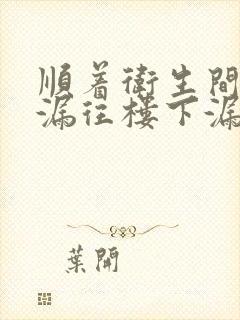 順着衛生間
漏往樓下漏
葉開